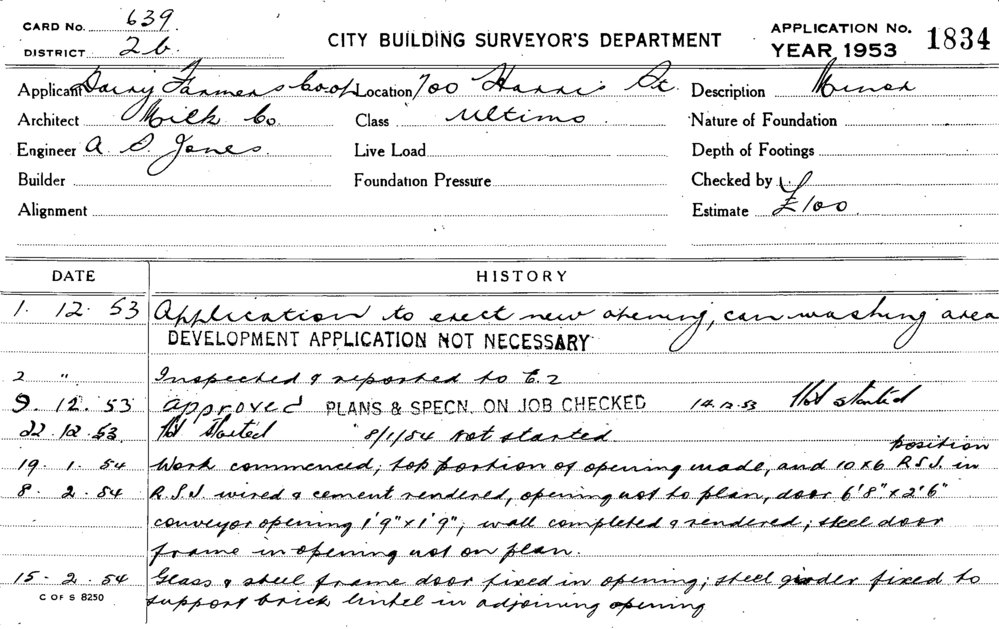 CARD NO. 639
DISTRICT 2b.
CITY BUILDING SURVEYOR'S DEPARTMENT
APPLICATION NO. 1834
YEAR 1953
Applicant Dairy Farmers Coop Location 700 Harris St. Description Minor
Architect Milk Co. Class Ultimo. Nature of Foundation
Engineer A. O. Jones. Live Load Depth of Footings
Builder Foundation Pressure Checked by
Alignment Estimate £100
DATE HISTORY
1. 12. 53 Application to erect new opening, can washing area
DEVELOPMENT APPLICATION NOT NECESSARY
2 " Inspected & reported to E.2
9. 12. 53 approved PLANS & SPECN. ON JOB CHECKED 14.12.53 Not started
22.12.53. Not started 8/1/54 not started.
position
19. 1. 54 Work commenced; top portion of opening made, and 10x6 R.S.J. in
8. 2. 54 R.S.J. wired & cement rendered, opening not to plan, door 6'8" x 2'6"
conveyor opening 1'9" x 1'9", wall completed & rendered; steel door
frame in opening not on plan.
15. 2. 54 Glass & steel frame door fixed in opening; steel girder fixed to
C OF S 8250 support brick lintel in adjoining opening